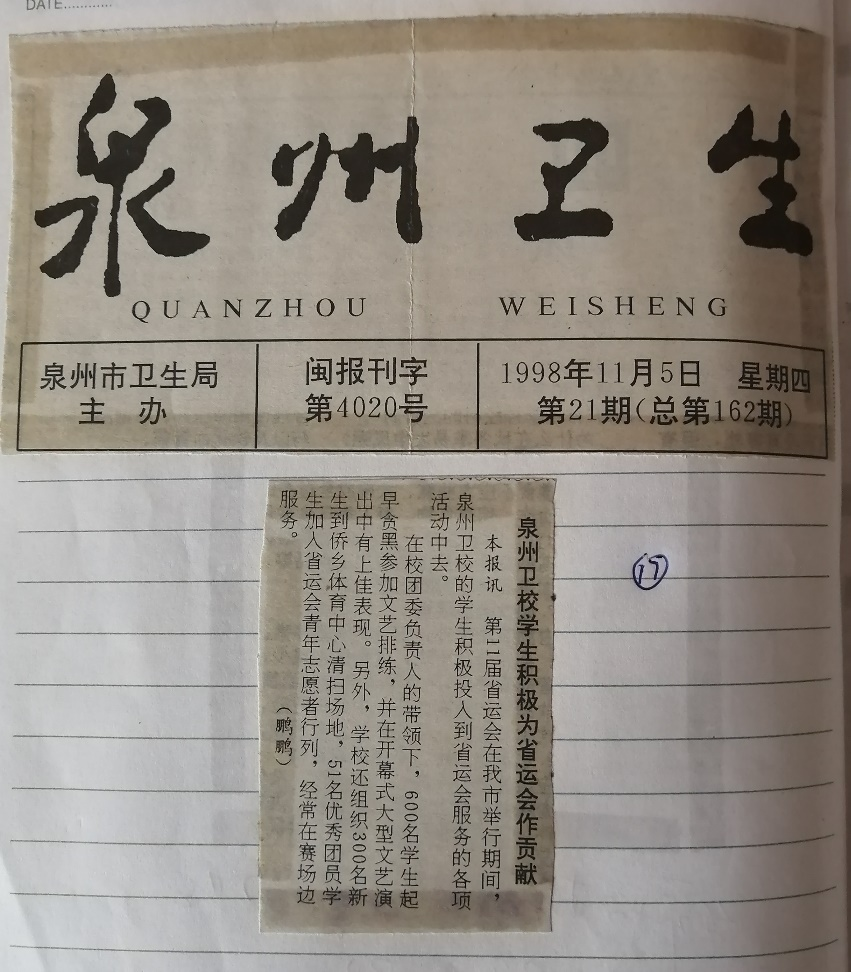 DATE............
泉州卫生
QUANZHOU WEISHENG
泉州市卫生局
主办
闽报刊字
第4020号
1998年11月5日 星期四
第21期(总第162期)
⑰
泉州卫校学生积极为省运会作贡献
本报讯 第11届省运会在我市举行期间，
泉州卫校的学生积极投入到省运会服务的各项
活动中去。
在校团委负责人的带领下，600名学生起
早贪黑参加文艺排练，并在开幕式大型文艺演
出中有上佳表现。另外，学校还组织300名新
生到侨乡体育中心清扫场地，51名优秀团员学
生加入省运会青年志愿者行列，经常在赛场边
服务。
（鹏鹏）